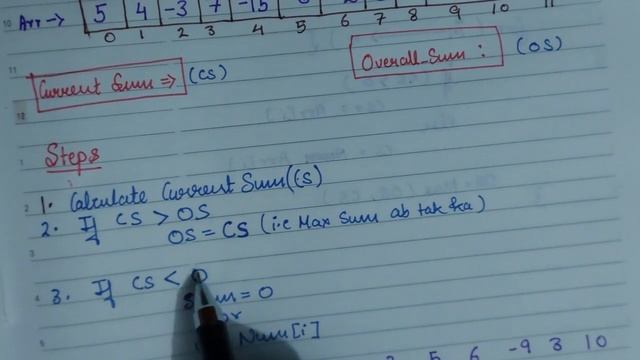 Arr → 5 4 -3 7 -15
0 1 2 3 4 5 6 7 8 9 10 11
Current Sum ⇒ (CS)
Overall_Sum : (OS)
Steps
1. Calculate Current Sum(CS)
2. If CS > OS
OS = CS (i.e Max Sum ab tak ka)
3. If CS < 0
= 0
Num[i]
5 6 -9 3 10